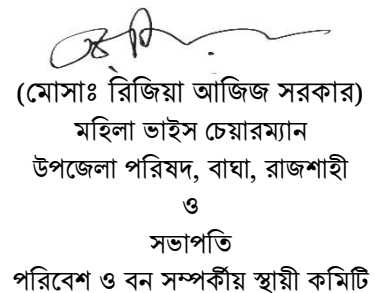 (মোসাঃ রিজিয়া আজিজ সরকার)
মহিলা ভাইস চেয়ারম্যান
উপজেলা পরিষদ, বাঘা, রাজশাহী
ও
সভাপতি
পরিবেশ ও বন সম্পর্কীয় স্থায়ী কমিটি